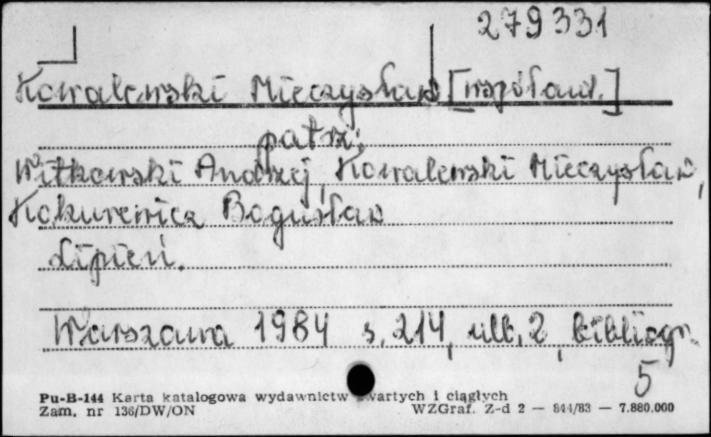 279331
Kowalewski Mieczysław [współaut.]
patrz:
Witkowski Andrzej, Kowalewski Mieczysław,
Kokurewicz Bogusław
Lipień.
Warszawa 1984 s. 214, nlb. 2, bibliogr.
5
Pu-B-144 Karta katalogowa wydawnictw zwartych i ciągłych
Zam. nr 136/DW/ON WZGraf. Z-d 2 — 844/83 — 7.880.000